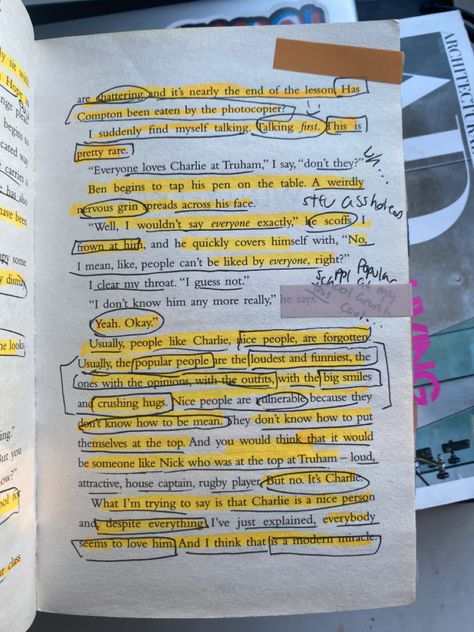 are chattering and it's nearly the end of the lesson. Has
Compton been eaten by the photocopier?
I suddenly find myself talking. Talking first. This is
pretty rare.
"Everyone loves Charlie at Truham," I say, "don't they?"
Ben begins to tap his pen on the table. A weirdly
nervous grin spreads across his face.
"Well, I wouldn't say everyone exactly," he scoffs. I
frown at him, and he quickly covers himself with, "No,
I mean, like, people can't be liked by everyone, right?"
I clear my throat. "I guess not."
"I don't know him any more really," he says.
"Yeah. Okay."
Usually, people like Charlie, nice people, are forgotten.
Usually, the popular people are the loudest and funniest, the
ones with the opinions, with the outfits, with the big smiles
and crushing hugs. Nice people are vulnerable because they
don't know how to be mean. They don't know how to put
themselves at the top. And you would think that it would
be someone like Nick who was at the top at Truham – loud,
attractive, house captain, rugby player. But no. It's Charlie.
What I'm trying to say is that Charlie is a nice person
and, despite everything I've just explained, everybody
seems to love him. And I think that is a modern miracle.
popular
ARCHITECTURA